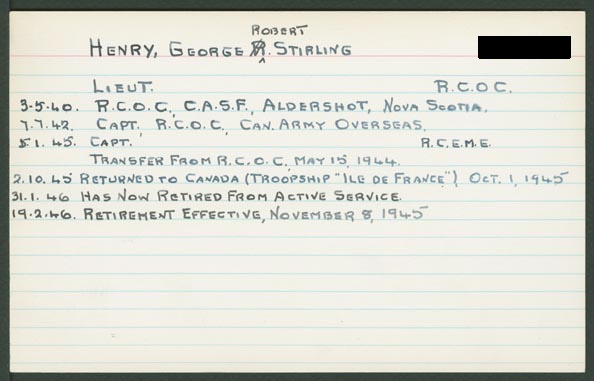 ROBERT
HENRY, GEORGE R. STIRLING
LIEUT. R.C.O.C.
3.5.40. R.C.O.C., C.A.S.F., ALDERSHOT, NOVA SCOTIA.
7.7.42. CAPT., R.C.O.C., CAN. ARMY OVERSEAS.
5.1.45. CAPT. R.C.E.M.E.
TRANSFER FROM R.C.O.C., MAY 15, 1944.
2.10.45 RETURNED TO CANADA (TROOPSHIP "ILE DE FRANCE"), OCT. 1, 1945
31.1.46 HAS NOW RETIRED FROM ACTIVE SERVICE.
19.2.46. RETIREMENT EFFECTIVE, NOVEMBER 8, 1945